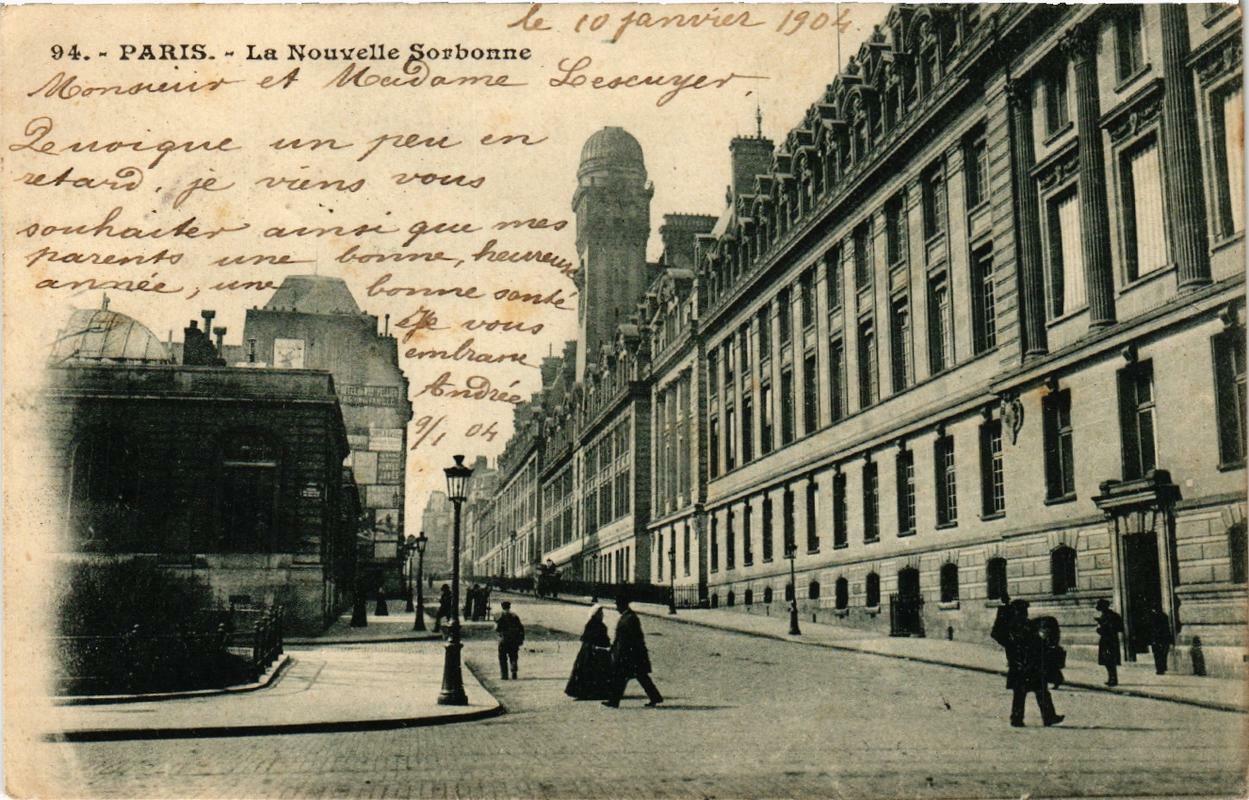 le 10 janvier 1904
94. - PARIS. - La Nouvelle Sorbonne
Monsieur et Madame Lescuyer.
Quoique un peu en
retard, je viens vous
souhaiter ainsi que mes
parents une bonne, heureuse
année, une bonne santé
Je vous
embrasse
Andrée
9/1 04